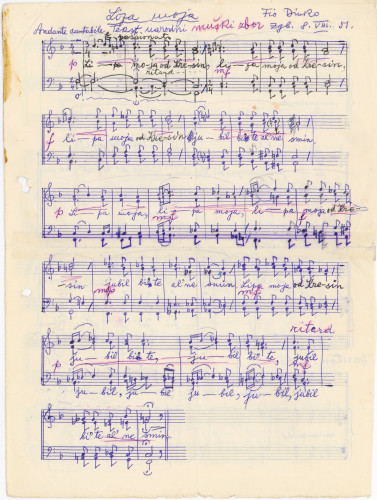 Lipa moja Fio Dinko
Andante cantabile, Tekst narodni muški zbor Zgb. 8. VIII. 51.
p Li-pa moja od kre-sin, li-pa moja od kre-sin,
ritard mf
f li-pa moja od kre-sin ju-bil bi te al ne smin.
p Li-pa moja, li-pa moja, li-pa moja od kre-
mf
sin jubil bi te al ne smin Lipa moja od kre-sin
mf mf
ritard
p ju-bil bi te, ju-bil bi te, jubil
ju-bil, jubil ju-bil, ju-bil, jubil
bi te al ne smin.